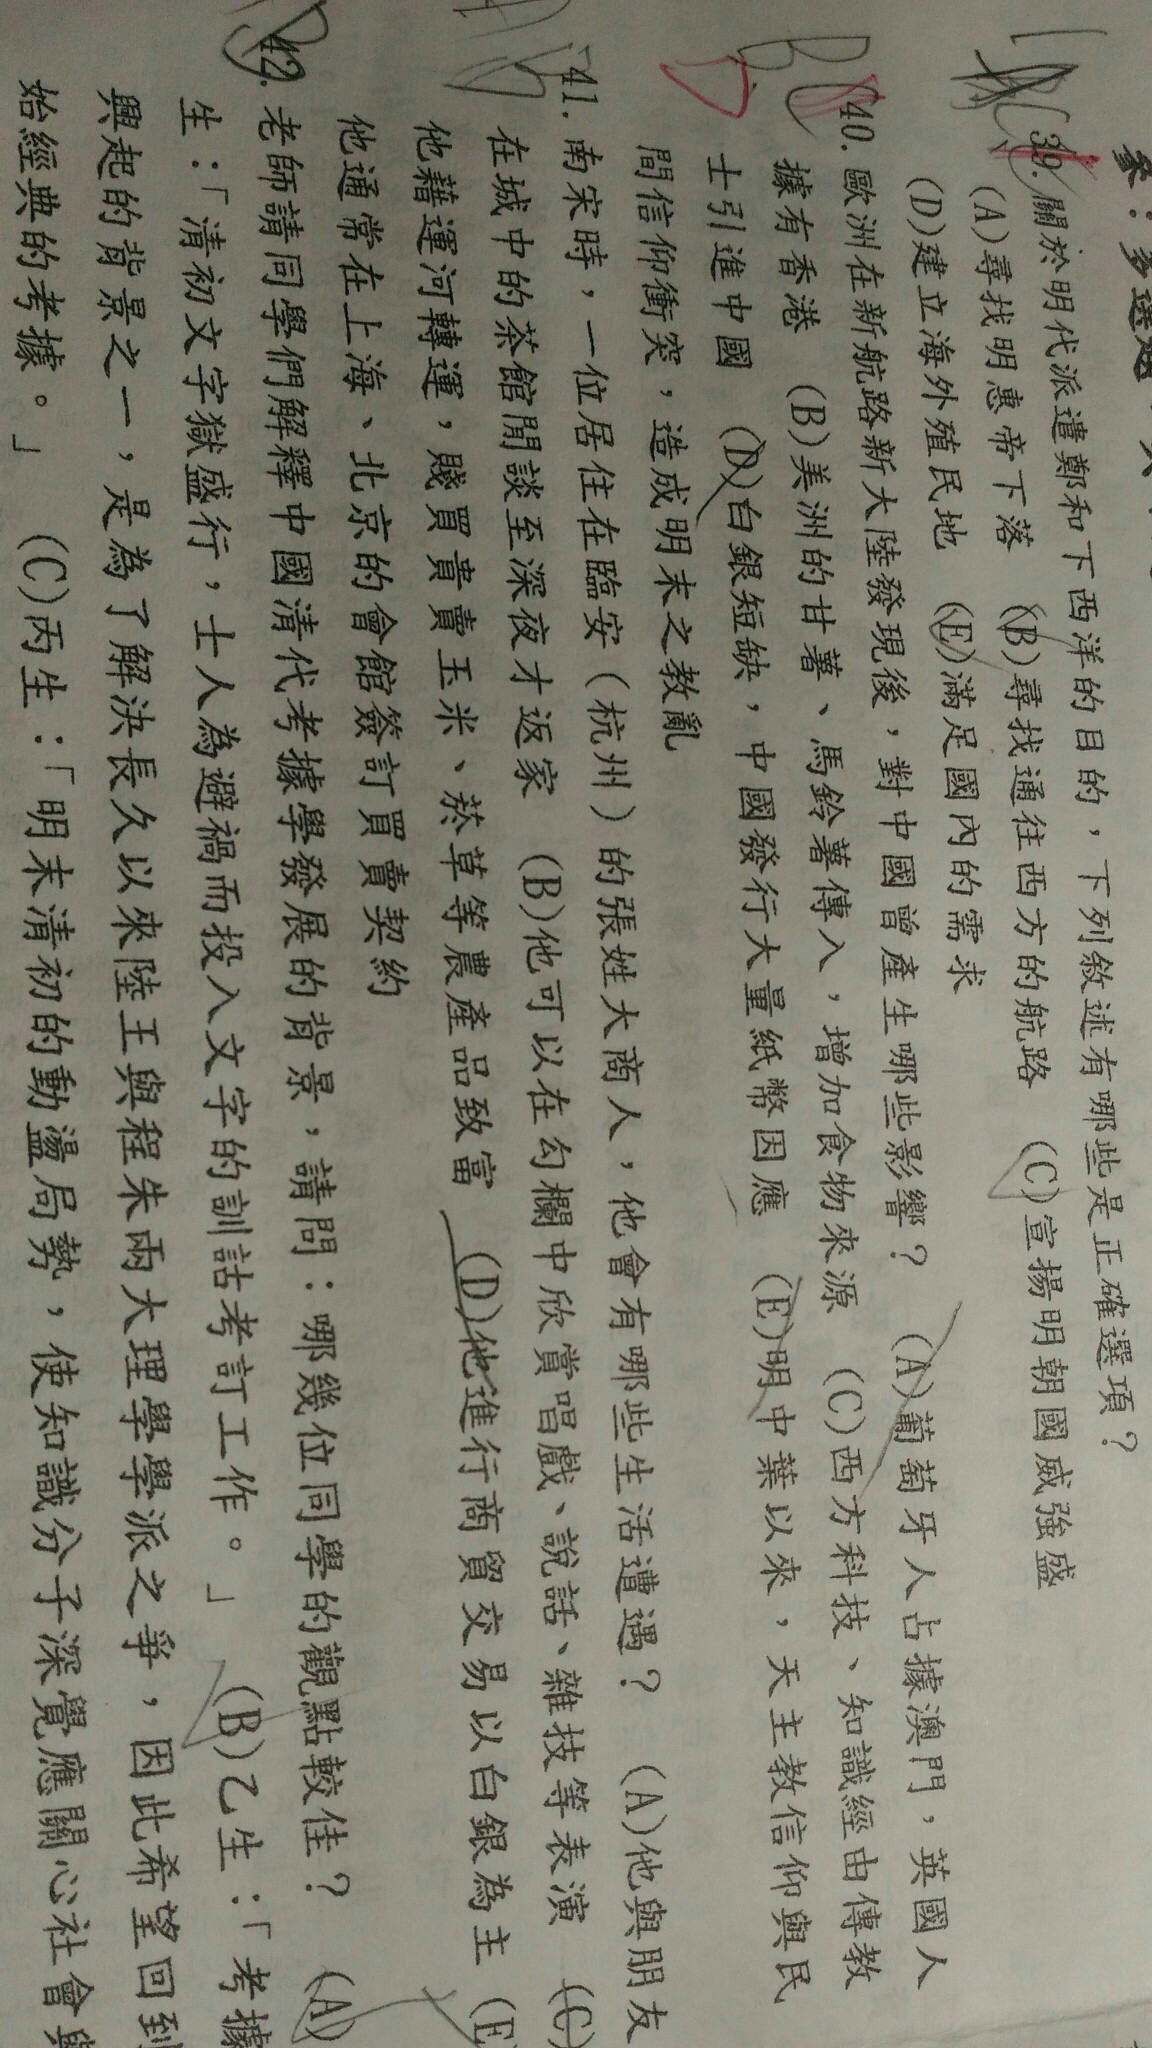 參：多選題
39. 關於明代派遣鄭和下西洋的目的，下列敘述有哪些是正確選項？
(A)尋找明惠帝下落 (B)尋找通往西方的航路 (C)宣揚明朝國威強盛
(D)建立海外殖民地 (E)滿足國內的需求
40. 歐洲在新航路新大陸發現後，對中國曾產生哪些影響？ (A)葡萄牙人占據澳門，英國人
據有香港 (B)美洲的甘薯、馬鈴薯傳入，增加食物來源 (C)西方科技、知識經由傳教
士引進中國 (D)白銀短缺，中國發行大量紙幣因應 (E)明中葉以來，天主教信仰與民
間信仰衝突，造成明末之教亂
41. 南宋時，一位居住在臨安（杭州）的張姓大商人，他會有哪些生活遭遇？ (A)他與朋友
在城中的茶館閒談至深夜才返家 (B)他可以在勾欄中欣賞唱戲、說話、雜技等表演 (C)
他藉運河轉運，賤買貴賣玉米、菸草等農產品致富 (D)他進行商貿交易以白銀為主 (E)
他通常在上海、北京的會館簽訂買賣契約
42. 老師請同學們解釋中國清代考據學發展的背景，請問：哪幾位同學的觀點較佳？ (A)
生：「清初文字獄盛行，士人為避禍而投入文字的訓詁考訂工作。」 (B)乙生：「考據
興起的背景之一，是為了解決長久以來陸王與程朱兩大理學學派之爭，因此希望回到
始經典的考據。」 (C)丙生：「明末清初的動盪局勢，使知識分子深覺應關心社會與